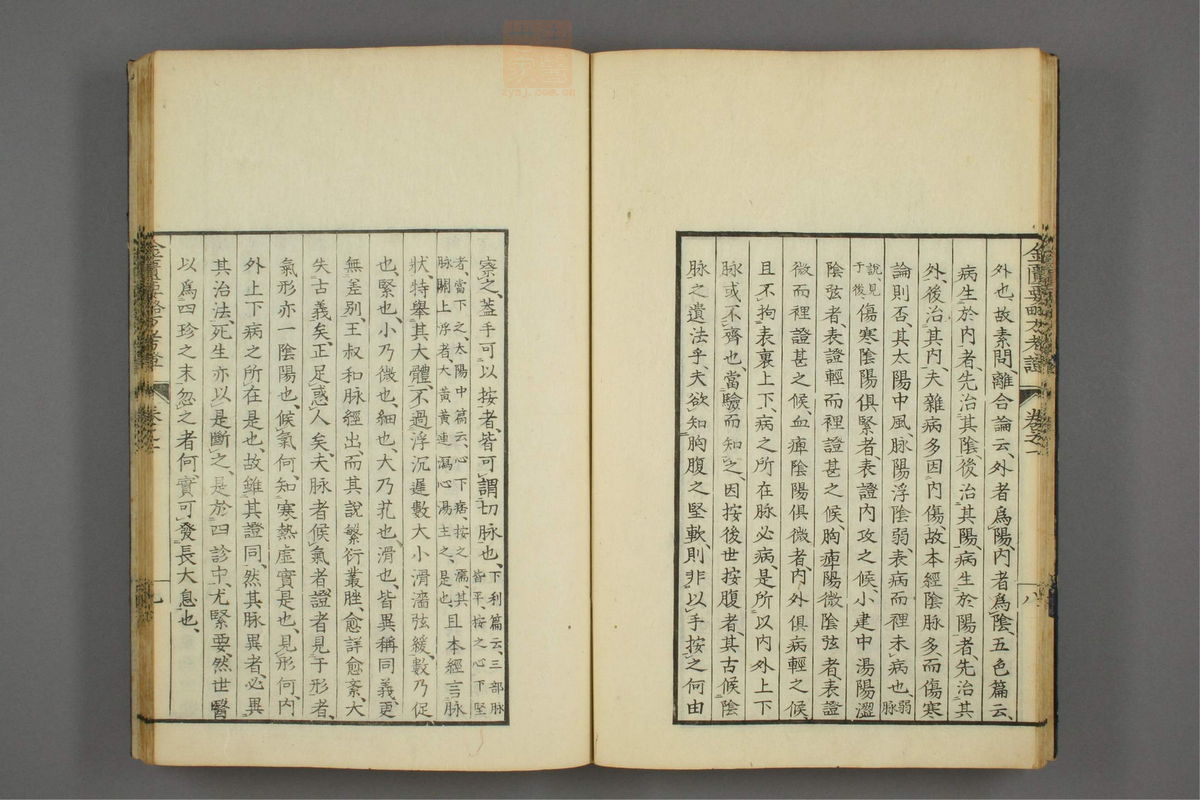 外也、故素問離合論云、外者爲陽、内者爲陰、五色篇云、
病生於内者、先治其陰、後治其陽、病生於陽者、先治其
外、後治其内、夫雜病多因内傷、故本經陰脉多、而傷寒
論則否、其太陽中風、脉陽浮陰弱、表病而裡未病也、弱脉
說見于後、傷寒陰陽俱緊者、表證内攻之候、小建中湯陽澀
陰弦者、表證輕而裡證甚之候、胸痺陽微陰弦者、表證
微而裡證甚之候、血痺陰陽俱微者、内外俱病輕之候、
且不拘表裏上下、病之所在脉必病、是所以内外上下
脉或不齊也、當驗而知之、因按後世按腹者、其古候陰
脉之遺法乎、夫欲知胸腹之堅軟、則非以手按之何由
金匱要略方考證
卷之一
八
察之、蓋手可以按者、皆可謂切脉也、下利篇云、三部脉皆平、按之心下堅
者、當下之、太陽中篇云、心下痞、按之濡、其脉關上浮者、大黃黃連瀉心湯主之、是也、且本經言脉
狀、特舉其大體、不過浮沉遲數大小滑濇弦緩、數乃促
也、緊也、小乃微也、細也、大乃芤也、滑也、皆異稱同義、更
無差别、王叔和脉經出、而其說繁衍叢脞、愈詳愈紊、大
失古義矣、正足惑人矣、夫脉者候氣者、證者見于形者、
氣形亦一陰陽也、候氣何、知寒熱虛實是也、見形何、内
外上下病之所在是也、故雖其證同、然其脉異者、必異
其治法、死生亦以是斷之、是於四診中、尤緊要、然世醫
以爲四珍之末、忽之者何、實可發長大息也、
金匱要略方考證
卷之一
九